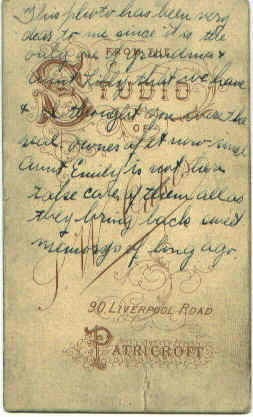 This photo has been very
dear to me since it is the
only one of Grandma &
FROM THE
Aunt Lilly that we have
STUDIO
& I thought you were the
OF
real owner of it now since
Aunt Emily is not here
Take care of them all as
they bring back sweet
memorys of long ago.
90 LIVERPOOL ROAD
PATRICROFT